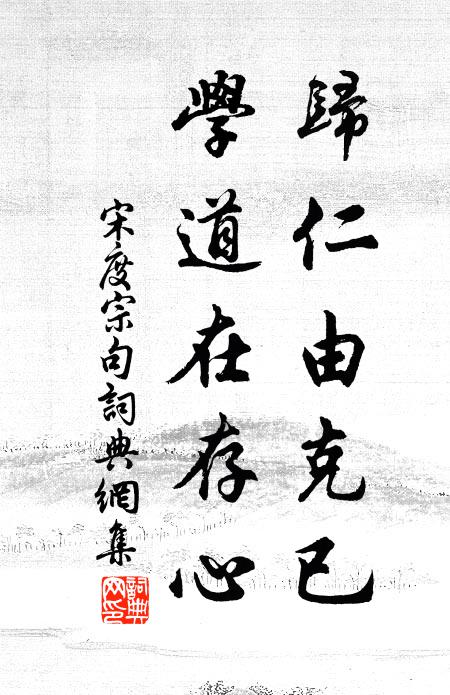 歸仁由克己
學道在存心
宋度宗句詞典網集
詞典网印